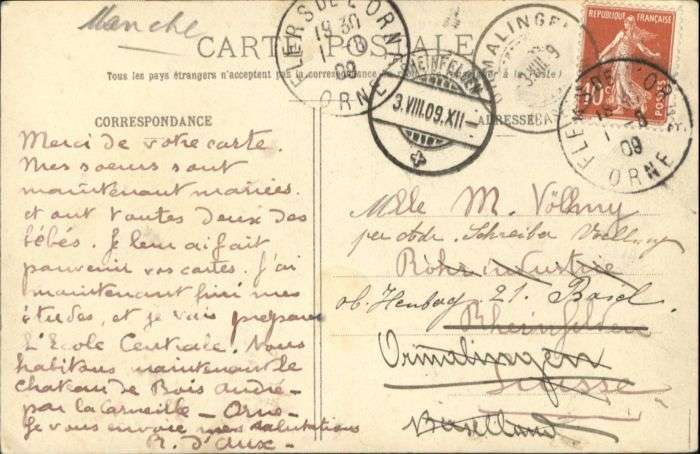 Manche
CARTE POSTALE
Tous les pays étrangers n'acceptent pas la correspondance
CORRESPONDANCE
ADRESSE
RÉPUBLIQUE FRANÇAISE
10c
POSTES
FLERS DE L'ORNE
19 30
1-8
09
ORNE
RHEINFELDEN
3.VIII.09.XII
ORMALINGEN
FLERS DE L'ORNE
1-8
09
ORNE
Merci de votre carte.
Mes soeurs sont
maintenant mariées
et ont toutes deux des
bébés. Je leur ai fait
parvenir vos cartes. J'ai
maintenant fini mes
études, et je vais préparer
l'Ecole Centrale. Nous
habitons maintenant le
chateau de Bois André
par la Carneille - Orne
Je vous envoie mes salutations
R. d'Aux -
Melle M. Völlmy
per Adr. Schreiber Völlmy
Röhr industrie
ob. Heuberg 21. Basel
Rheinfelden
Ormalingen
Suisse
Baselland